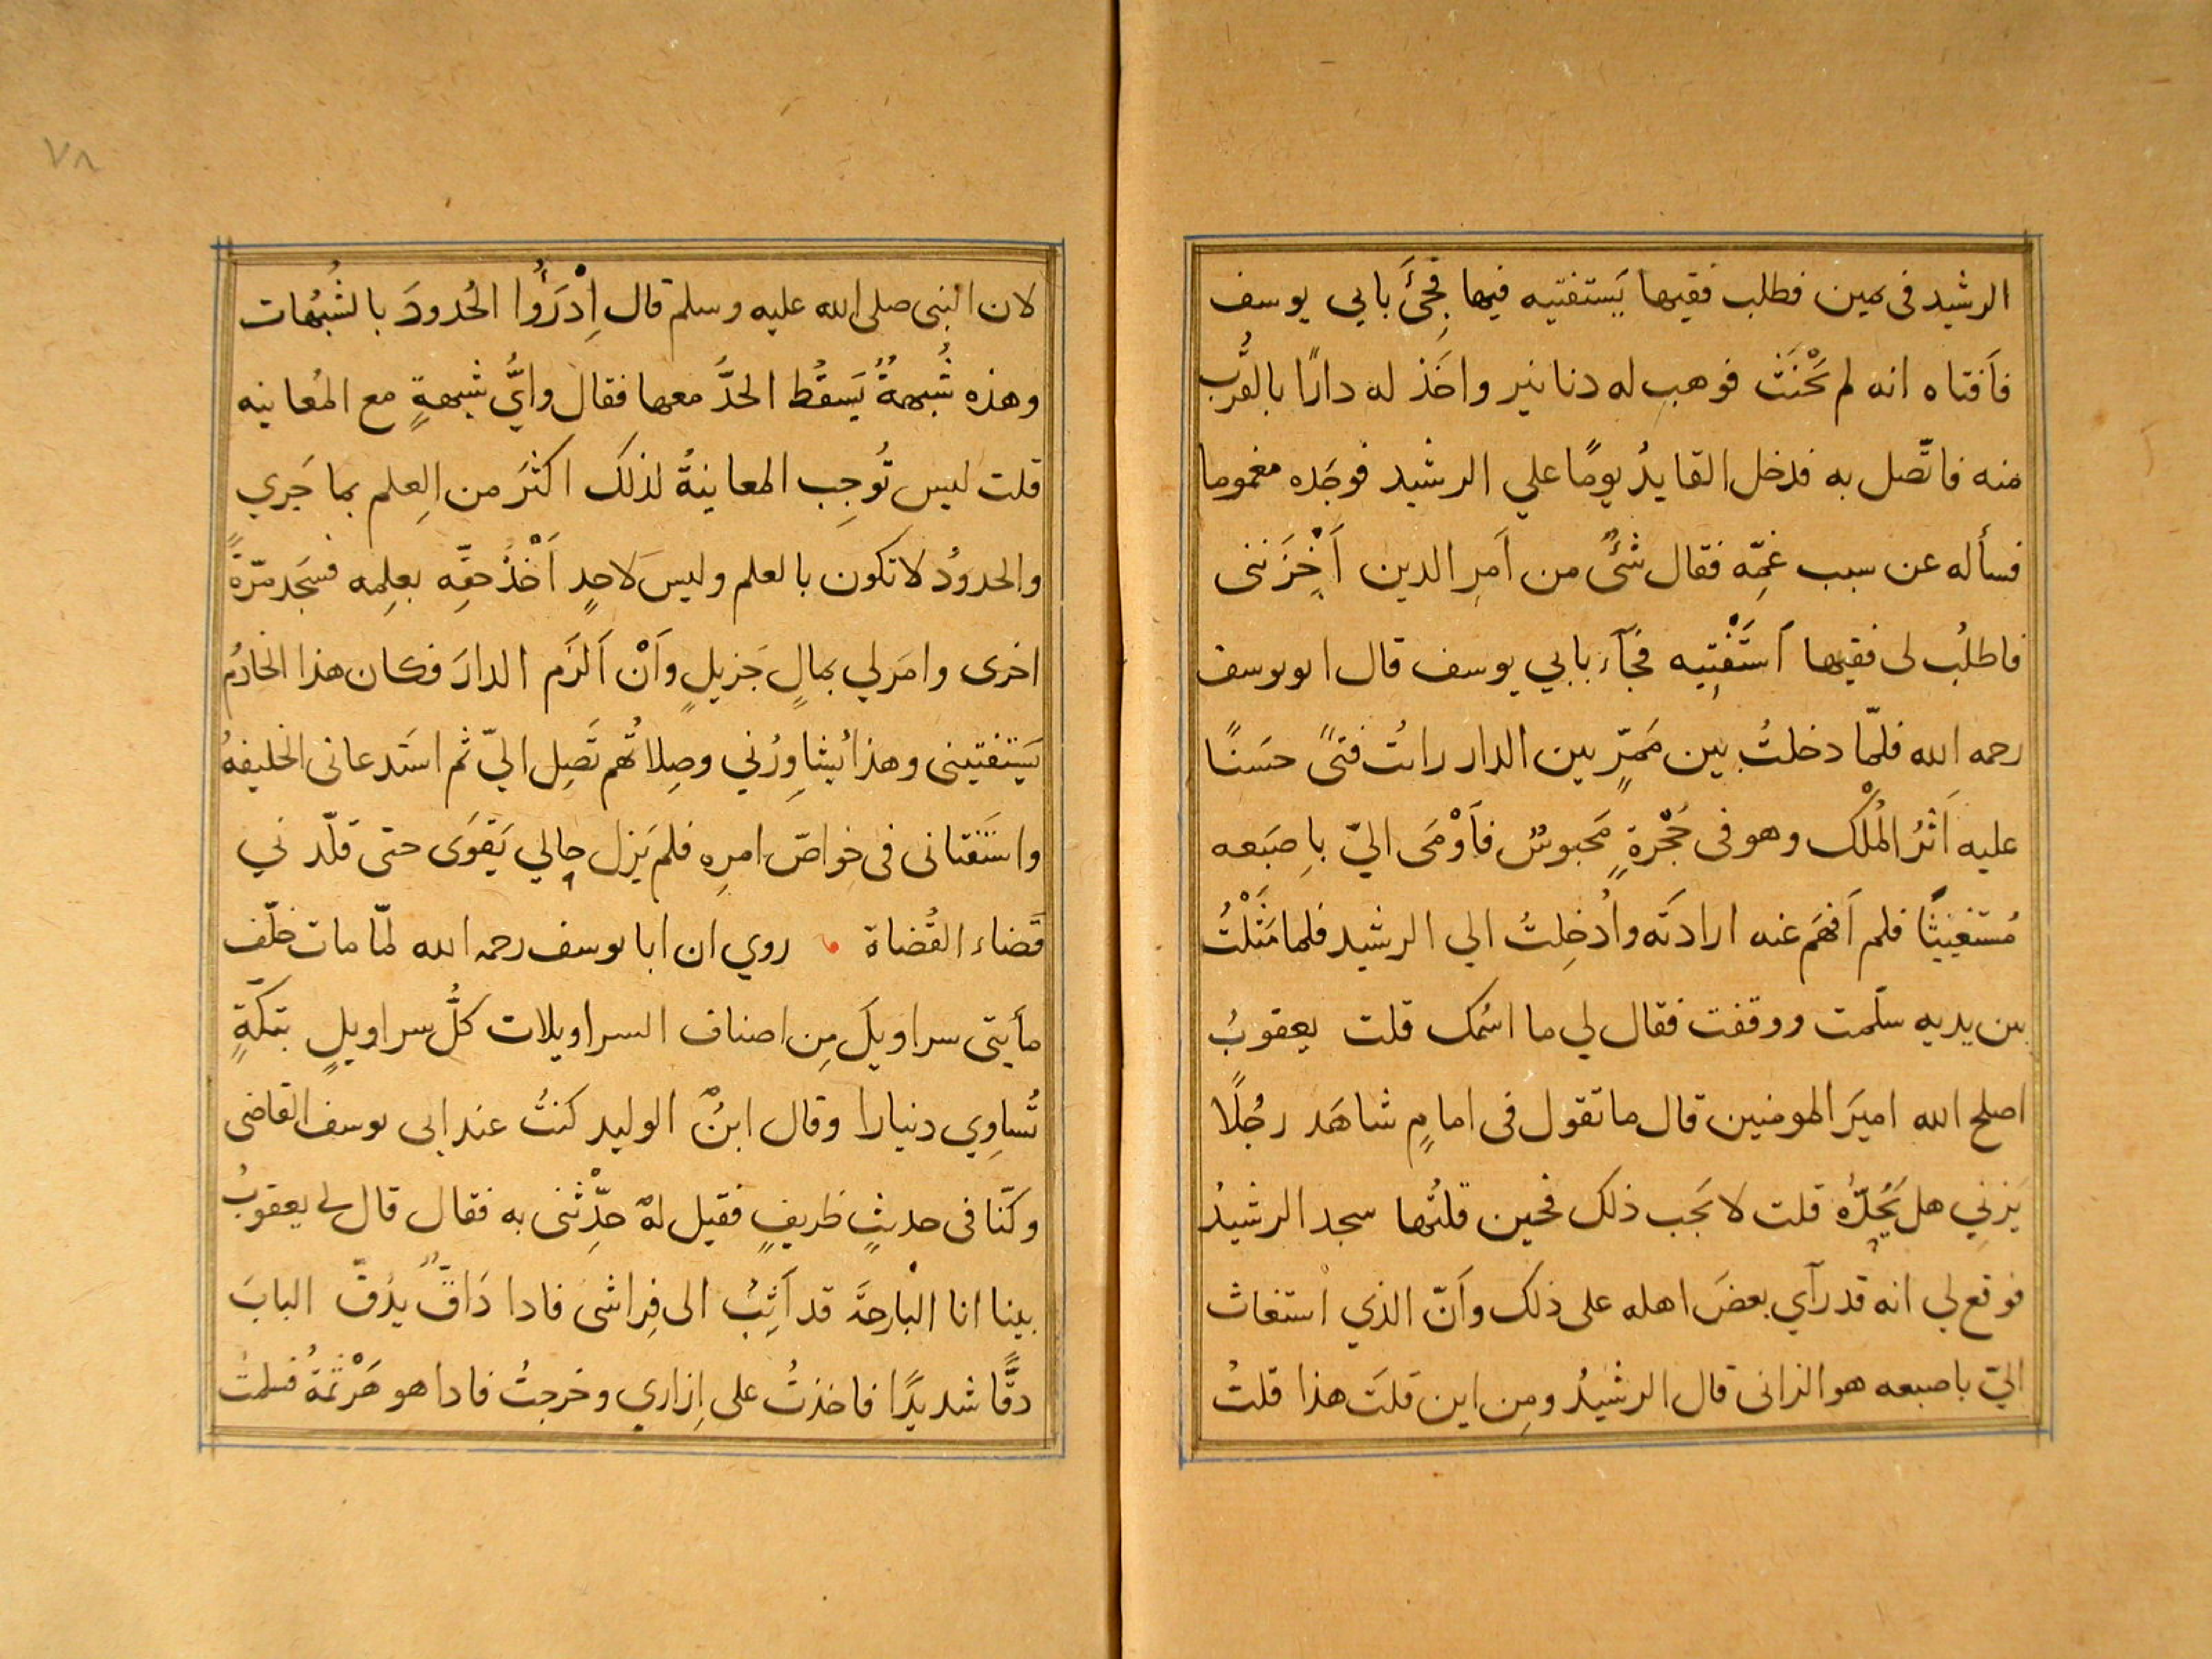 الرشيد فى يمين فطلب فقيها يَستفتيه فيها فجِئَ بابي يوسف
فاَفتاه انه لم يَحْنَث فوهب له دنانير واخَذ له دارًا بالقُرب
منه فاتّصل به فدخل القايدُ يومًا علي الرشيد فوجَده مغموما
فسأله عن سبب غمِّه فقال شئٌ من اَمرِ الدين اَحْزَننى
فاطلُب لى فقيها اَستَفْتِيه فجَآء بابي يوسف قال ابويوسف
رحمه الله فلمّا دخلتُ بين مَمرٍّ بين الدار رايتُ فتىً حسَنًا
عليه اَثرُ المُلْك وهو فى حُجْرةٍ مَحبوسٌ فاَوْمَى اليّ باِصبَعه
مُستغيثًا فلم اَفهَم عنه ارادتَه واُدخِلتُ الي الرشيد فلما مَثَلْتُ
بين يديه سلّمت ووقفت فقال لي ما اسُمك قلت يعقوبُ
اصلح الله اميَر المومنين قال ما تقول فى امامٍ شاهَد رجُلًا
يَزني هل يَحُدّهُ قلت لا يَجب ذلك فحين قلتُها سجد الرشيدُ
فوقع لي انه قد رآي بعضَ اهله على ذلك واَنّ الذي استغاث
اليّ باصبعه هو الزانى قال الرشيدُ ومِن اين قلتَ هذا قلتُ
٧٨
لان النبى صلى الله عليه وسلم قال اِدْرَؤُا الحُدودَ بالشُبُهات
وهذه شُبهةٌ يَسقُط الحدَّ معها فقال وايُّ شبهةٍ مع المُعاينه
قلت ليس تُوجِب المعاينةُ لذلك اكثرَ من العِلم بما جَري
والحدودُ لا تكون بالعلم وليسَ لاحدٍ اَخْذُ حقِّه بعلِمه فسَجَد مرّةً
اخرى وامَر لي بمالٍ جَزيلٍ واَنْ اَلزَم الدارَ فكان هذا الخادُم
يَستفتينى وهذا يُشاوِرُني وصِلاتُهم تَصِل اليّ ثم استَدعانى الخليفهُ
واستَفتانى فى خواصّ امرِه فلم يَزل حالي يَقوَى حتى قلّدني
قَضاء القُضاة روي ان ابا يوسف رحمه الله لمّا مات خلّف
مأيتى سراويلَ مِن اصناف السراويلات كلُّ سراويلٍ بتكّةٍ
تُساوِي دنيارا وقال ابنُ الوليد كنتُ عند ابى يوسف القاضى
وكنّا فى حديثٍ ظريفٍ فقيل له حدِّثْنى به فقال قال لے يعقوبُ
بينا انا البارحةَ قد اَثِبُ الى فِراشى فاذا دَاقٌّ يدُقّ البابَ
دقًّا شديدًا فاخذتُ على اِزاري وخرجتُ فاذا هو هَرْثَمَةُ فسلمتُ